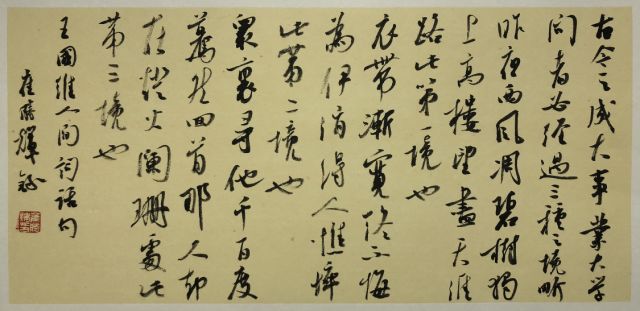 古今之成大事業大学
问者必经過三種之境畍
昨夜西风凋碧樹獨
上高樓望盡天涯
路此第一境也
衣帶漸寬終不悔
為伊消得人憔悴
此第二境也
眾裏尋他千百度
驀然回首那人却
在燈火阑珊處此
第三境也
王國維人间詞話句
崔輝錄